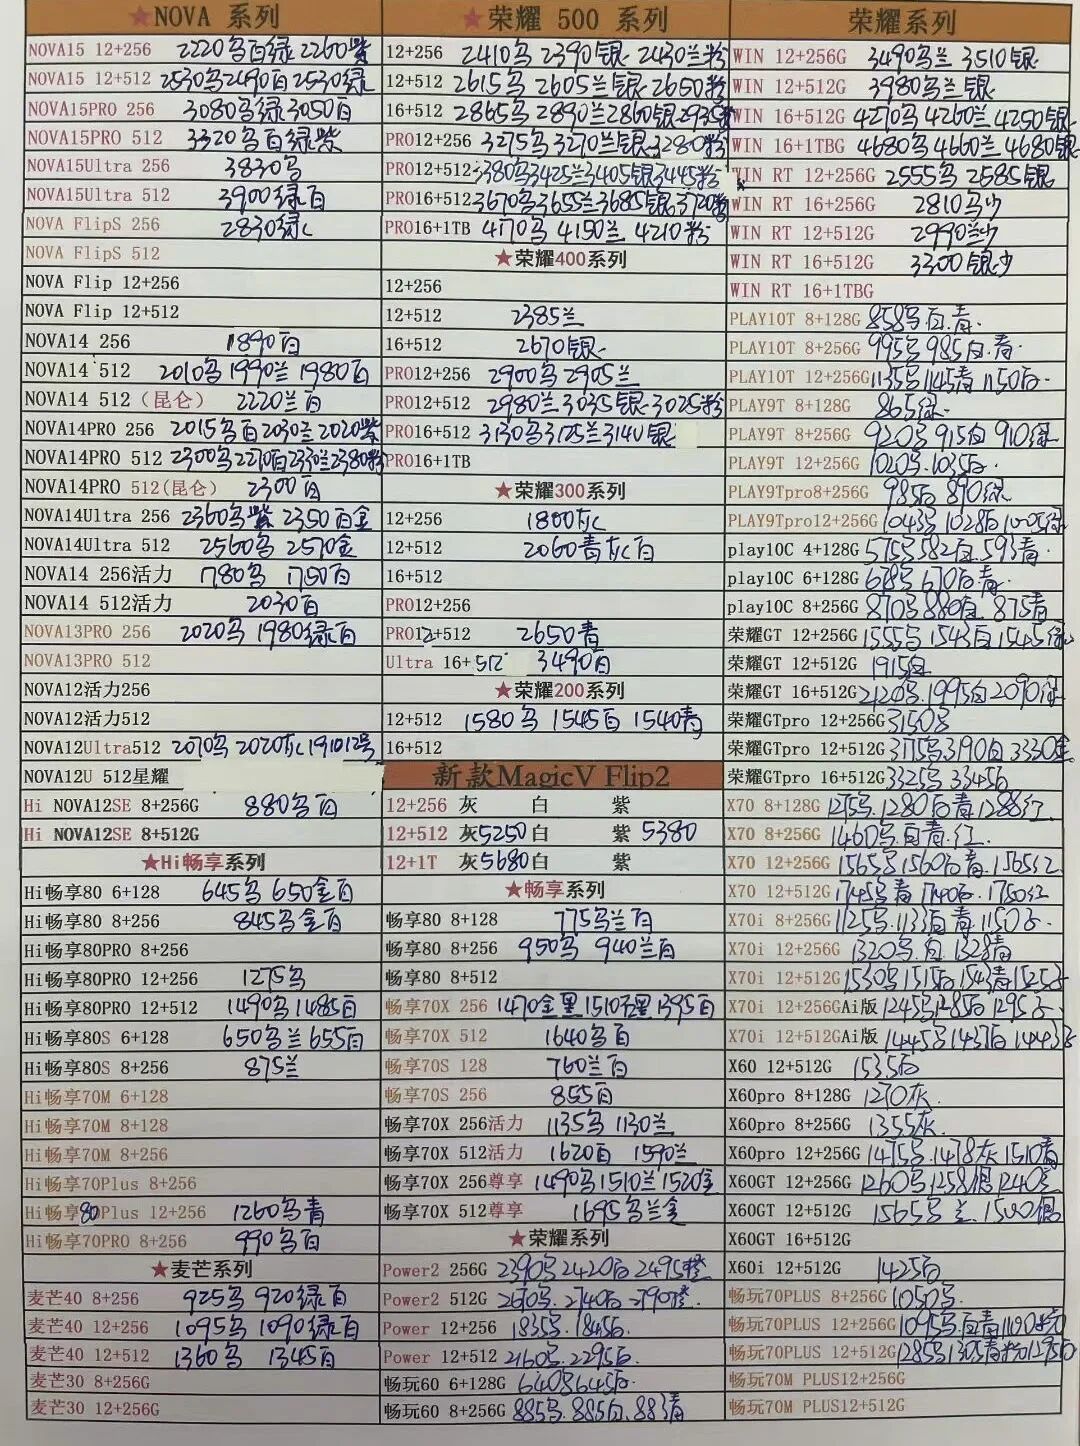 ★NOVA 系列
NOVA15 12+256 2220乌白绿 2260紫
NOVA15 12+512 2530乌2490白2530绿
NOVA15PRO 256 3080乌绿3050白
NOVA15PRO 512 3320乌白绿紫
NOVA15Ultra 256 3830乌
NOVA15Ultra 512 3900绿白
NOVA FlipS 256 2830绿
NOVA FlipS 512
NOVA Flip 12+256
NOVA Flip 12+512
NOVA14 256 1890白
NOVA14 512 2010乌1990兰1980白
NOVA14 512（昆仑） 2220兰白
NOVA14PRO 256 2015乌白2030兰2020紫
NOVA14PRO 512 2300乌2270白2330兰2380粉
NOVA14PRO 512(昆仑） 2300白
NOVA14Ultra 256 2360乌紫 2350白金
NOVA14Ultra 512 2560乌 2570金
NOVA14 256活力 1780乌 1750白
NOVA14 512活力 2030白
NOVA13PRO 256 2020乌 1980绿白
NOVA13PRO 512
NOVA12活力256
NOVA12活力512
NOVA12Ultra512 2070乌 2020灰
NOVA12U 512星耀
Hi NOVA12SE 8+256G 880乌白
Hi NOVA12SE 8+512G
★Hi畅享系列
Hi畅享80 6+128 645乌 650金白
Hi畅享80 8+256 845乌金白
Hi畅享80PRO 8+256
Hi畅享80PRO 12+256 1275乌
Hi畅享80PRO 12+512 1490乌1485白
Hi畅享80S 6+128 650乌兰655白
Hi畅享80S 8+256 875兰
Hi畅享70M 6+128
Hi畅享70M 8+128
Hi畅享70M 8+256
Hi畅享70Plus 8+256
Hi畅享80Plus 12+256 1260乌青
Hi畅享70PRO 8+256 990乌白
★麦芒系列
麦芒40 8+256 925乌 920绿白
麦芒40 12+256 1095乌 1090绿白
麦芒40 12+512 1360乌 1345白
麦芒30 8+256G
麦芒30 12+256G
★荣耀 500 系列
12+256 2410乌 2390银 2430兰粉
12+512 2615乌 2605兰银 2650粉
16+512 2865乌 2890兰2860银2935粉
PRO12+256 3275乌3270兰银3280粉
PRO12+512 3380乌3425兰3405银3445粉
PRO16+512 3670乌3655兰3685银3720粉
PRO16+1TB 4170乌 4150兰 4210粉
★荣耀400系列
12+256
12+512 2385兰
16+512 2670银
PRO12+256 2900乌 2905兰
PRO12+512 2980兰3035银3025粉
PRO16+512 3130乌3125兰3140银
PRO16+1TB
★荣耀300系列
12+256 1800灰
12+512 2060青灰白
16+512
PRO12+256
PRO12+512 2650青
Ultra 16+512 3490白
★荣耀200系列
12+512 1580乌 1545白 1540青
16+512
新款MagicV Flip2
12+256 灰 白 紫
12+512 灰5250白 紫 5380
12+1T 灰5680白 紫
★畅享系列
畅享80 8+128 775乌兰白
畅享80 8+256 950乌 940兰白
畅享80 8+512
畅享70X 256 1470金黑1510 1395白
畅享70X 512 1640乌白
畅享70S 128 760兰白
畅享70S 256 855白
畅享70X 256活力 1135乌 1130兰
畅享70X 512活力 1620白 1590兰
畅享70X 256尊享 1490乌1510兰1520金
畅享70X 512尊享 1695乌兰金
★荣耀系列
Power2 256G 2390乌2420白2495橙
Power2 512G 2670乌.2740白2790橙.
Power 12+256 1835乌.1845白.
Power 12+512 2160乌.2295白.
畅玩60 6+128G 640乌645白.
畅玩60 8+256G 885乌.885白.883青
荣耀系列
WIN 12+256G 3490乌兰 3510银
WIN 12+512G 3980乌兰银
WIN 16+512G 4270乌4260兰4250银
WIN 16+1TBG 4680乌4660兰4680银
WIN RT 12+256G 2555乌 2585银
WIN RT 16+256G 2810乌沙
WIN RT 12+512G 2990兰沙
WIN RT 16+512G 3300银沙
WIN RT 16+1TBG
PLAY10T 8+128G 858乌.白.青.
PLAY10T 8+256G 995乌985白.青.
PLAY10T 12+256G1135乌1145青1150白.
PLAY9T 8+128G 865绿.
PLAY9T 8+256G 920乌 915白 910绿
PLAY9T 12+256G 1020乌.1035白.
PLAY9Tpro8+256G 985白 890绿
PLAY9Tpro12+256G 1043乌 1028白1005绿
play10C 4+128G 575乌582白.593青.
play10C 6+128G 678乌670白青.
play10C 8+256G 870乌880白.875青
荣耀GT 12+256G 1555乌1543白1545绿
荣耀GT 12+512G 1915白
荣耀GT 16+512G2120乌.1995白2090绿
荣耀GTpro 12+256G3150乌
荣耀GTpro 12+512G3175乌3190白3330金
荣耀GTpro 16+512G3325乌3345白
X70 8+128G 1275乌.1280白青1288红
X70 8+256G 1460乌.白青.红.
X70 12+256G 1565乌1560白青.1565红
X70 12+512G 1745乌青1740白.1750红
X70i 8+256G 1125乌.1133白青.1150
X70i 12+256G 1320乌.白.1328青
X70i 12+512G1530乌1515白1543青1525
X70i 12+256GAi版1245乌1285白1295
X70i 12+512GAi版1445乌1437白1443
X60 12+512G 1535白
X60pro 8+128G 1270灰.
X60pro 8+256G 1355灰.
X60pro 12+256G 1475乌.1478灰1510青
X60GT 12+256G 1260乌1258 1240
X60GT 12+512G 1565乌兰.1500
X60GT 16+512G
X60i 12+512G 1425白
畅玩70PLUS 8+256G 1050乌.
畅玩70PLUS 12+256G1095乌.白青
畅玩70PLUS 12+512G1285乌1305青
畅玩70M PLUS12+256G
畅玩70M PLUS12+512G